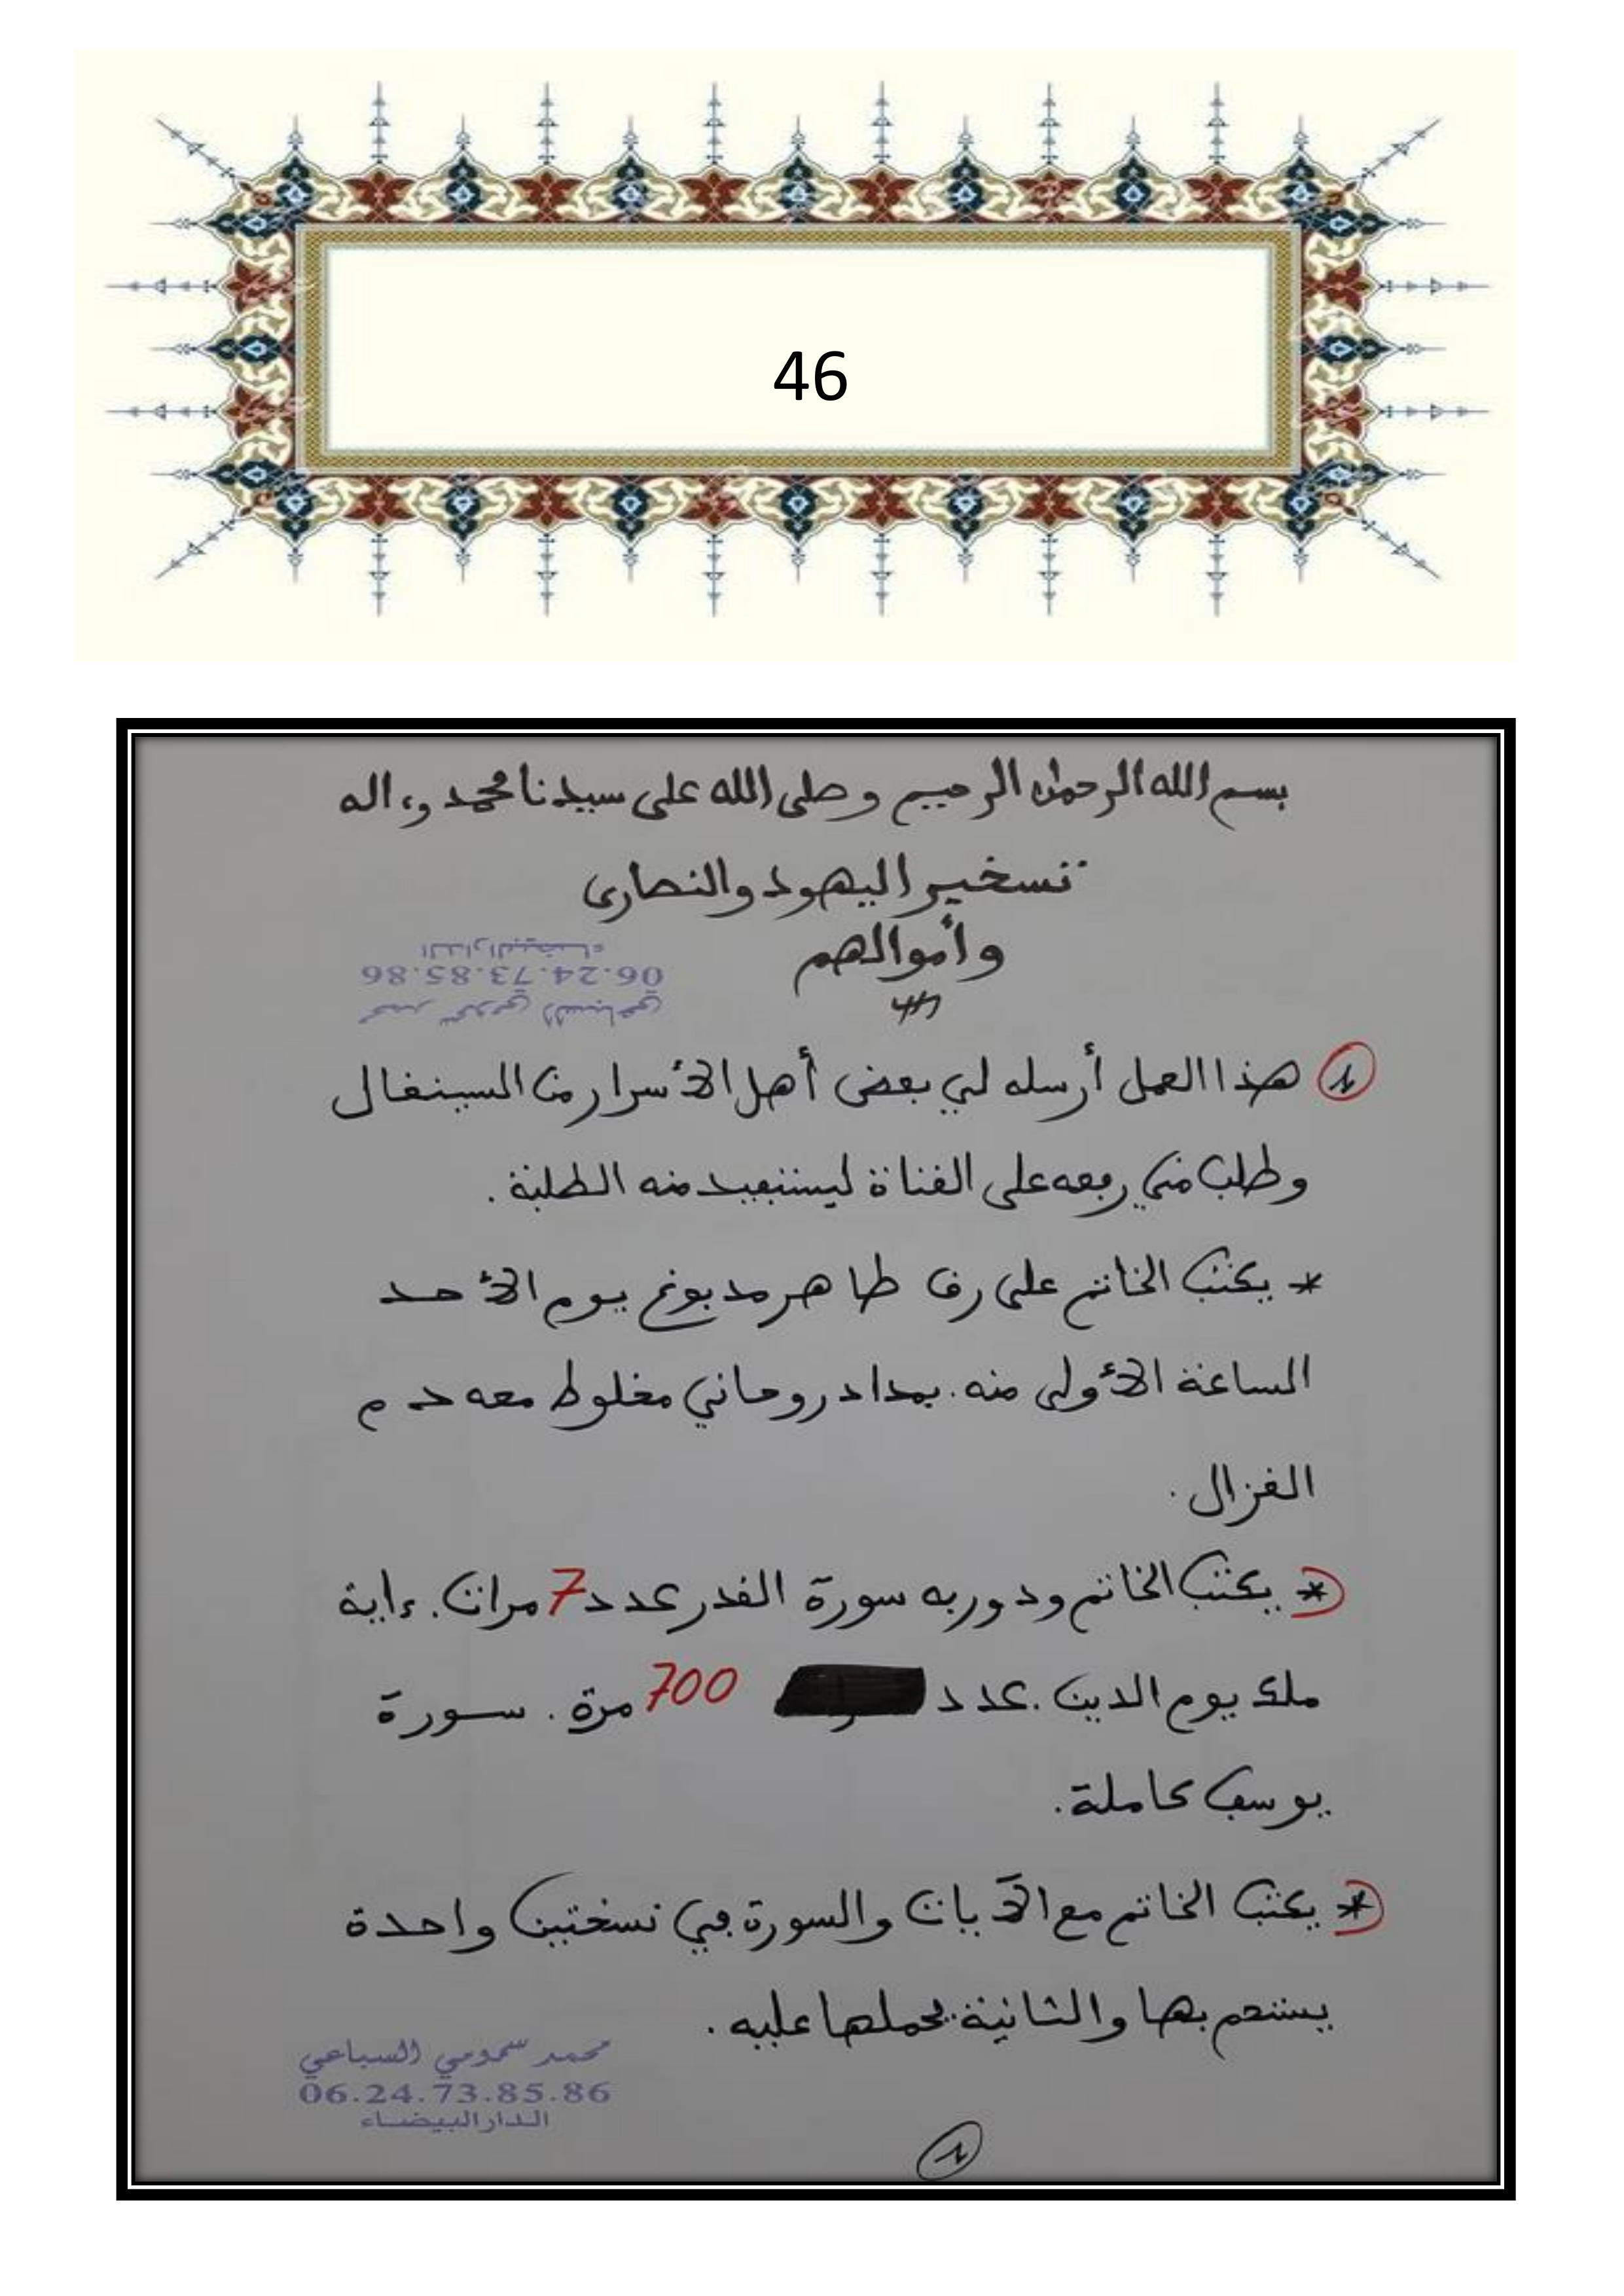 46
بسم الله الرحمن الرحيم وصلى الله على سيدنا محمد وءاله
تسخير اليهود والنصارى
وأموالهم
محمد سمومي السباعي
06.24.73.85.86
الدار البيضاء
1 هذا العمل أرسله لي بعض أهل الأسرار من السينغال
وطلب مني رفعه على القناة ليستفيد منه الطلبة.
* يكتب الخاتم على رق طاهر مدبوغ يوم الأحد
الساعة الأولى منه. بمداد روحاني مخلوط معه دم
الغزال.
* يكتب الخاتم ودور به سورة القدر عدد 7 مرات. ءاية
ملك يوم الدين. عدد 700 مرة. سورة
يوسف كاملة.
* يكتب الخاتم مع الآيات والسورة في نسختين واحدة
يستحم بها والثانية يحملها عليه.
محمد سمومي السباعي
06.24.73.85.86
الدار البيضاء
1